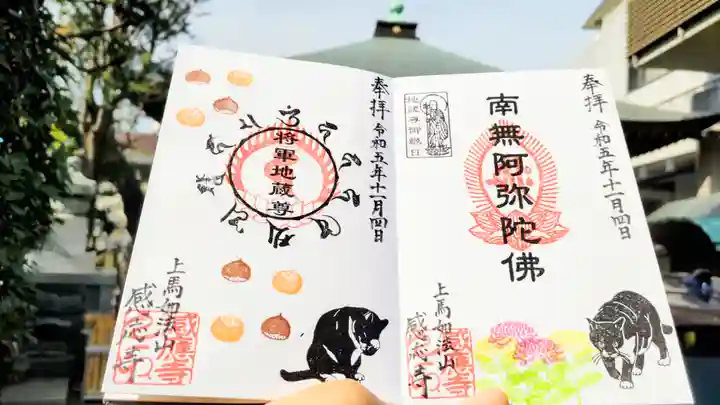 奉拝 令和五年十一月四日
南無阿弥陀佛
地蔵尊御縁日
上馬如法山
感応寺
感應寺
奉拝 令和五年十一月四日
将軍地蔵尊
上馬如法山
感応寺
感應寺